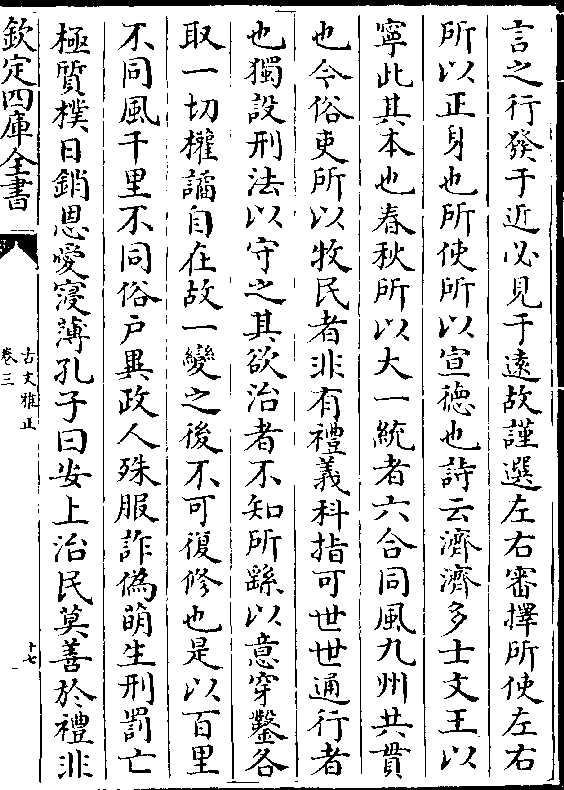 言之行發于近必見于遠故謹選左右審擇所使左右
所以正身也所使所以宣德也詩云濟濟多士文王以
寧此其本也春秋所以大一統者六合同風九州共貫
也今俗吏所以牧民者非有禮義科指可世世通行者
也獨設刑法以守之其欲治者不知所繇以意穿鑿各
取一切權譎自在故一變之後不可復修也是以百里
不同風千里不同俗户異政人殊服詐偽萌生刑罰亡
極質樸日銷恩愛寖薄孔子曰安上治民莫善於禮非
欽定四庫全書
古文雅正
卷三
十七